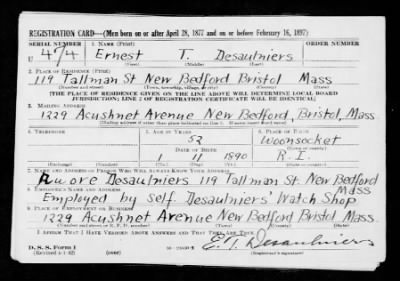 REGISTRATION CARD—(Men born on or after April 28, 1877 and on or before February 16, 1897)
SERIAL NUMBER 1. NAME (Print) ORDER NUMBER
U 474 Ernest T. Desaulniers
(First) (Middle) (Last)
2. PLACE OF RESIDENCE (Print)
119 Tallman St. New Bedford Bristol Mass
(Number and street) (Town, township, village, or city) (County) (State)
[THE PLACE OF RESIDENCE GIVEN ON THE LINE ABOVE WILL DETERMINE LOCAL BOARD
JURISDICTION; LINE 2 OF REGISTRATION CERTIFICATE WILL BE IDENTICAL]
3. MAILING ADDRESS
1229 Acushnet Avenue New Bedford, Bristol, Mass.
[Mailing address if other than place indicated on line 2. If same insert word same]
4. TELEPHONE 5. AGE IN YEARS 6. PLACE OF BIRTH
52 Woonsocket
DATE OF BIRTH
1 11 1890 R.I.
7. NAME AND ADDRESS OF PERSON WHO WILL ALWAYS KNOW YOUR ADDRESS
Desaulniers 119 Tallman St. New Bedford
Mass
8. EMPLOYER'S NAME AND ADDRESS
Employed by self Desaulniers' Watch Shop
9. PLACE OF EMPLOYMENT OR BUSINESS
1229 Acushnet Avenue New Bedford Bristol Mass
(Number and street or R. F. D. number) (Town) (County) (State)
I AFFIRM THAT I HAVE VERIFIED ABOVE ANSWERS AND THAT THEY ARE TRUE.
E. T. Desaulniers
D. S. S. Form 1
(Revised 4-1-42) (over) (Registrant's signature)